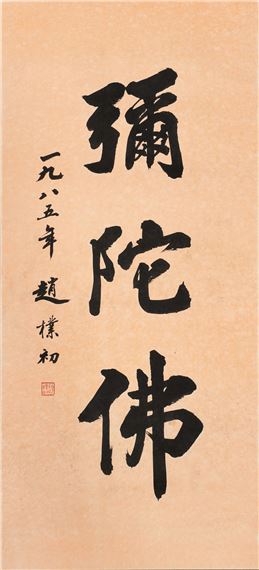 彌陀佛
一九八五年 趙樸初